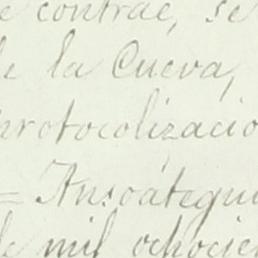 e contrae, se
de la Cueva,
protocolizacio
= Ansoátegui
de mil ochocie